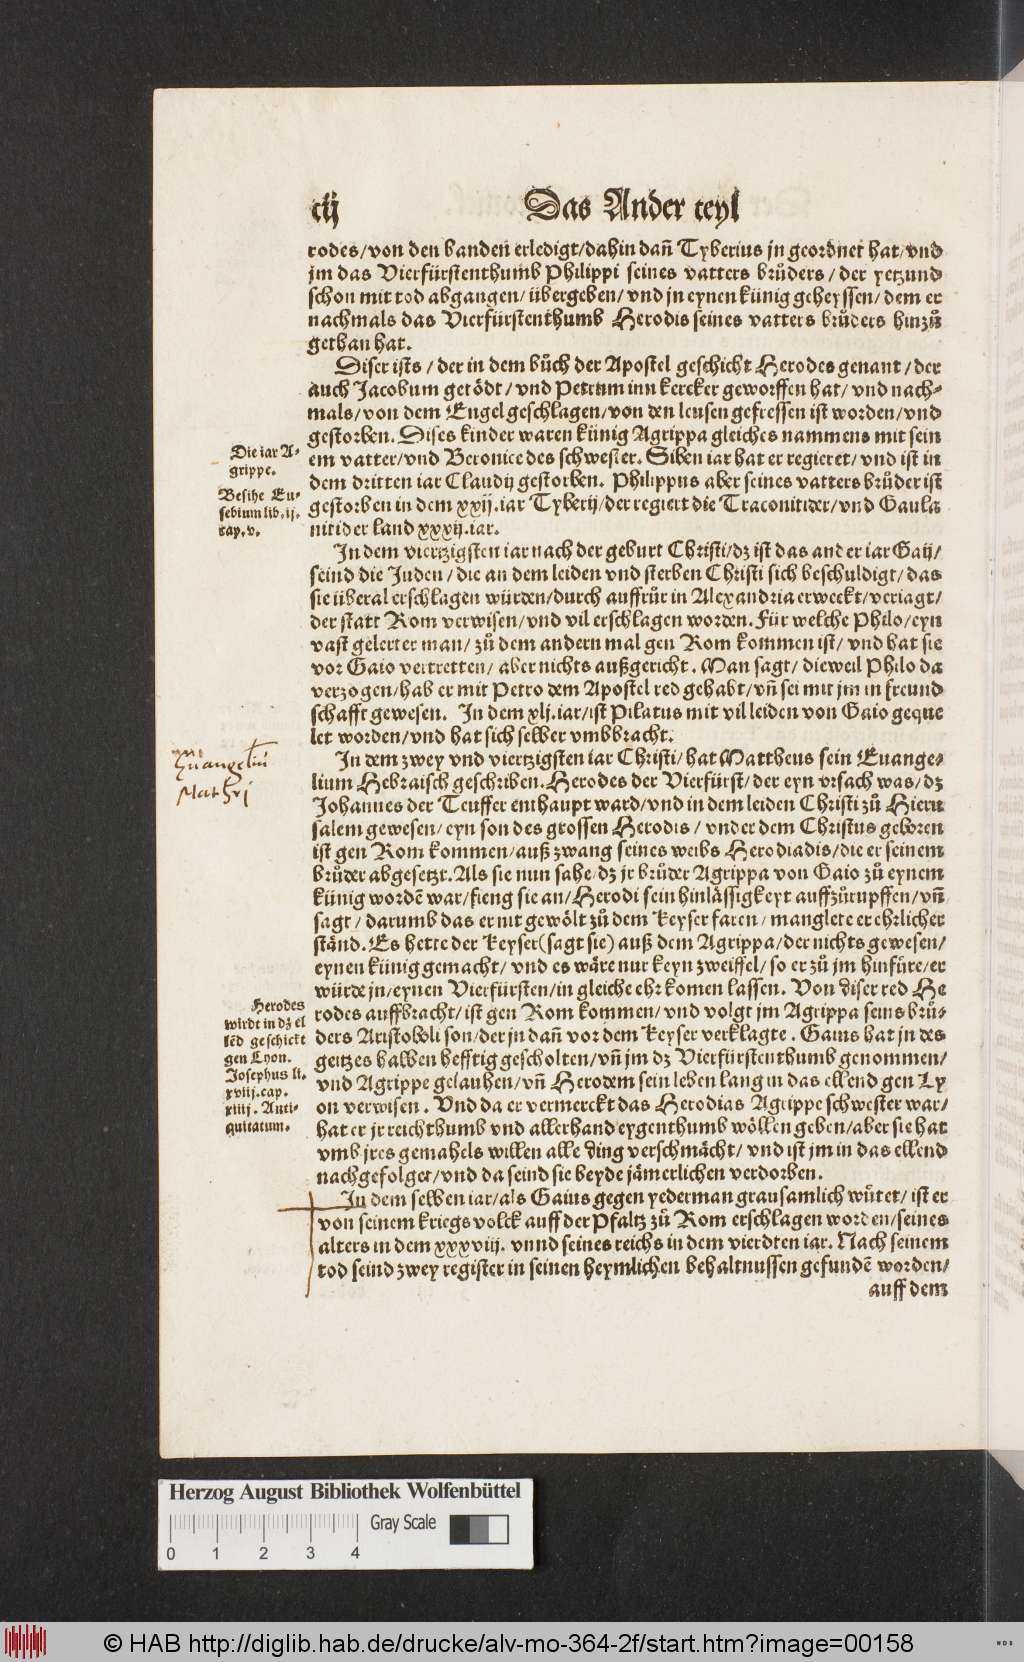 cij Das Ander teyl
rodes/von den banden erledigt/dahin dañ Tyberius jn geordnet hat/vnd
jm das Vierfürstenthumb Philippi seines vatters brůders/der yetzund
schon mit tod abgangen/übergeben/vnd jn eynen künig geheyssen/dem er
nachmals das Vierfürstenthumb Herodis seines vatters brůders hinzů
gethan hat.
Diser ists/der in dem bůch der Apostel geschicht Herodes genant/der
auch Jacobum getödt/vnd Petrum inn kercker geworffen hat/vnd nach-
mals/von dem Engel geschlagen/von den leusen gefressen ist worden/vnd
gestorben. Dises kinder waren künig Agrippa gleiches nammens mit sein
em vatter/vnd Beronice des schwester. Siben iar hat er regieret/vnd ist in
dem dritten iar Claudij gestorben. Philippus aber seines vatters brůder ist
gestorben in dem xxij.iar Tyberij/der regiert die Traconitider/vnd Gaula
nitider land xxxij.iar.
Die iar A-
grippe.
Besihe Eu-
sebium lib.ij.
cap.v.
In dem viertzigsten iar nach der geburt Christi/dz ist das ander iar Gaij/
seind die Juden/die an dem leiden vnd sterben Christi sich beschuldigt/das
sie überal erschlagen würden/durch auffrůr in Alexandria erweckt/veriagt/
der statt Rom verwisen/vnd vil erschlagen worden. Für welche Philo/eyn
vast gelerter man/zů dem andern mal gen Rom kommen ist/vnd hat sie
vor Gaio vertretten/aber nichts außgericht. Man sagt/dieweil Philo da
verzogen/hab er mit Petro dem Apostel red gehabt/vñ sei mit jm in freund
schafft gewesen. In dem xlj.iar/ist Pilatus mit vil leiden von Gaio geque
let worden/vnd hat sich selber vmbbracht.
Euangeliu
Mathej
In dem zwey vnd viertzigsten iar Christi/hat Mattheus sein Euange-
lium Hebraisch geschriben. Herodes der Vierfürst/der eyn vrsach was/dz
Johannes der Teuffer enthaupt ward/vnd in dem leiden Christi zů Hieru
salem gewesen/eyn son des grossen Herodis/vnder dem Christus geboren
ist gen Rom kommen/auß zwang seines weibs Herodiadis/die er seinem
brůder abgesetzt. Als sie nun sahe/dz jr brůder Agrippa von Gaio zů eynem
künig wordē war/fieng sie an/Herodi sein hinlässigkeyt auffzůrupffen/vñ
sagt/darumb das er nit gewölt zů dem Keyser faren/manglete er ehrlicher
ständ. Es hette der Keyser (sagt sie) auß dem Agrippa/der nichts gewesen/
eynen künig gemacht/vnd es wäre nur keyn zweiffel/so er zů jm hinfüre/er
würde jn/eynen Vierfürsten/in gleiche ehr komen lassen. Von diser red He
rodes auffbracht/ist gen Rom kommen/vnd volgt jm Agrippa seins brů-
ders Aristoboli son/der jn dañ vor dem Keyser verklagte. Gaius hat jn des
geitzes halben hefftig gescholten/vñ jm dz Vierfürstenthumb genommen/
vnd Agrippe gelauhen/vñ Herodem sein leben lang in das ellend gen Ly
on verwisen. Vnd da er vermerckt das Herodias Agrippe schwester war/
hat er jr reichthumb vnd allerhand eygenthumb wöllen geben/aber sie hat
vmb jres gemahels willen alle ding verschmächt/vnd ist jm in das ellend
nachgefolget/vnd da seind sie beyde jämerlichen verdorben.
Herodes
wirdt in dz el
lēd geschickt
gen Lyon.
Josephus li.
xviij.cap.
xiiij. Anti-
quitatum.
In dem selben iar/als Gaius gegen yederman grausamlich wůtet/ist er
von seinem kriegs volck auff der Pfaltz zů Rom erschlagen worden/seines
alters in dem xxxviij. vnnd seines reichs in dem vierdten iar. Nach seinem
tod seind zwey register in seinen heymlichen behaltnussen gefundē worden/
auff dem
Herzog August Bibliothek Wolfenbüttel
Gray Scale
0 1 2 3 4
© HAB http://diglib.hab.de/drucke/alv-mo-364-2f/start.htm?image=00158